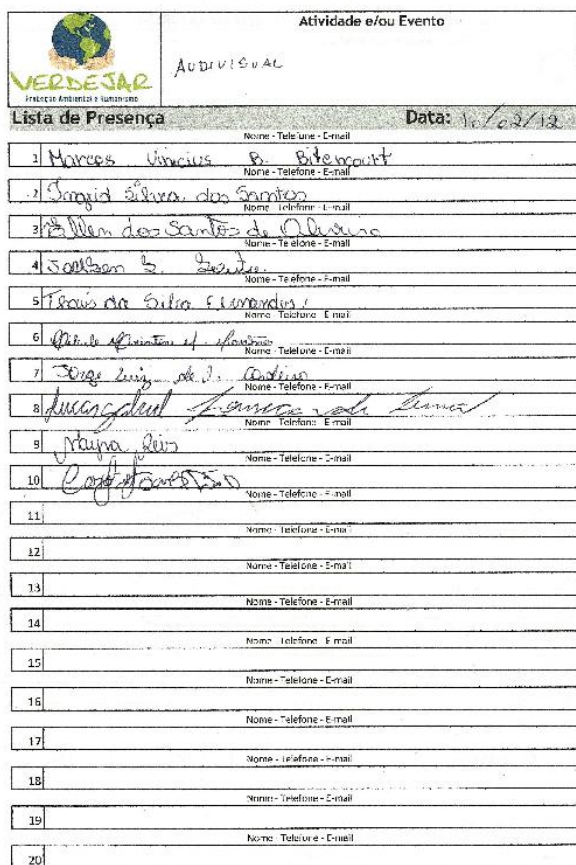 Atividade e/ou Evento
AUDIVISUAL
VERDEJAR
Proteção Ambiental e Humanismo
Lista de Presença Data: 10/02/12
Nome - Telefone - E-mail
1 Marcos Vinicius B. Bitencourt
Nome - Telefone - E-mail
2 Ingrid Silva dos Santos
Nome - Telefone - E-mail
3 Ellen dos Santos de Oliveira
Nome - Telefone - E-mail
4 S.
Nome - Telefone - E-mail
5 Thais da Silva Fernandes
Nome - Telefone - E-mail
6
Nome - Telefone - E-mail
7 Jorge Luiz de Cordeiro
Nome - Telefone - E-mail
8 Lucas Gabriel
Nome - Telefone - E-mail
9 Mayra Reis
Nome - Telefone - E-mail
10
Nome - Telefone - E-mail
11
Nome - Telefone - E-mail
12
Nome - Telefone - E-mail
13
Nome - Telefone - E-mail
14
Nome - Telefone - E-mail
15
Nome - Telefone - E-mail
16
Nome - Telefone - E-mail
17
Nome - Telefone - E-mail
18
Nome - Telefone - E-mail
19
Nome - Telefone - E-mail
20